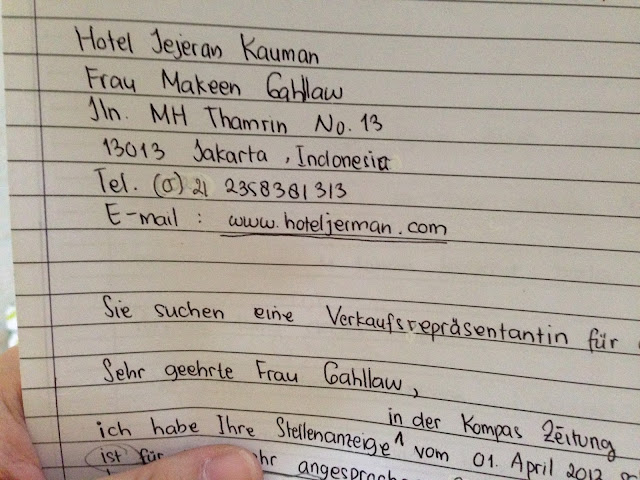 Hotel Jejeran Kauman
Frau Makeen Gahllaw
Jln. MH Thamrin No. 13
13013 Jakarta, Indonesia
Tel. (0) 21 2358381313
E-mail : www.hoteljerman.com
Sie suchen eine Verkaufsrepräsentantin für
Sehr geehrte Frau Gahllaw,
in der Kompas Zeitung
ich habe Ihre Stellenanzeige vom 01. April 2013
ist für